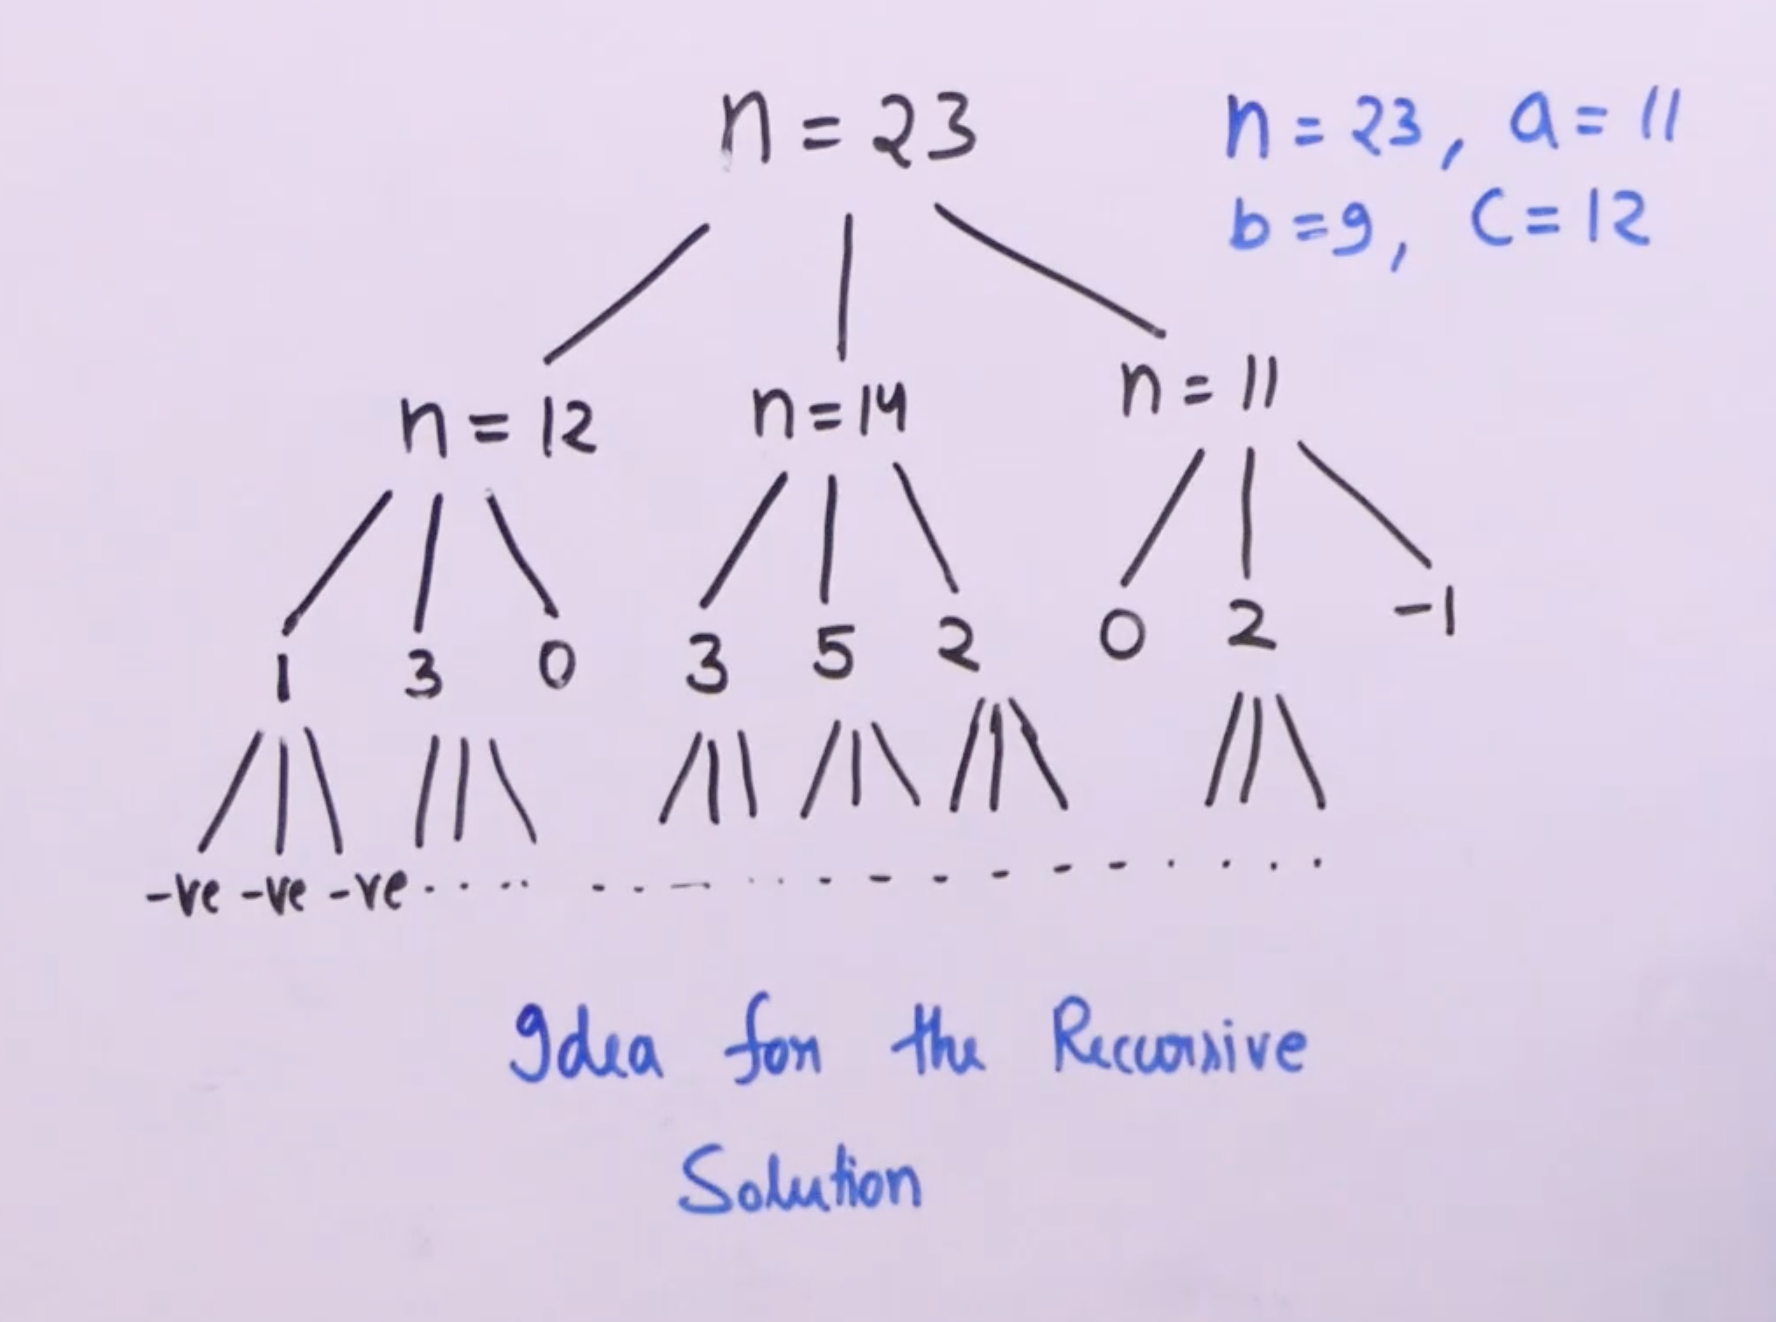 n = 23
n = 23, a = 11
b = 9, c = 12
n = 12
n = 14
n = 11
1 3 0 3 5 2 0 2 -1
-ve -ve -ve
Idea for the Recursive
Solution